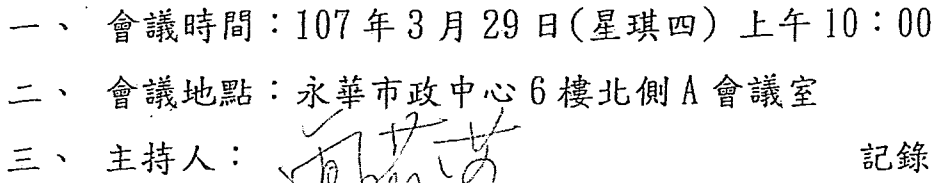 一、 會議時間：107 年 3 月 29 日(星琪四) 上午 10：00
二、 會議地點：永華市政中心 6 樓北側 A 會議室
三、 主持人： 記錄